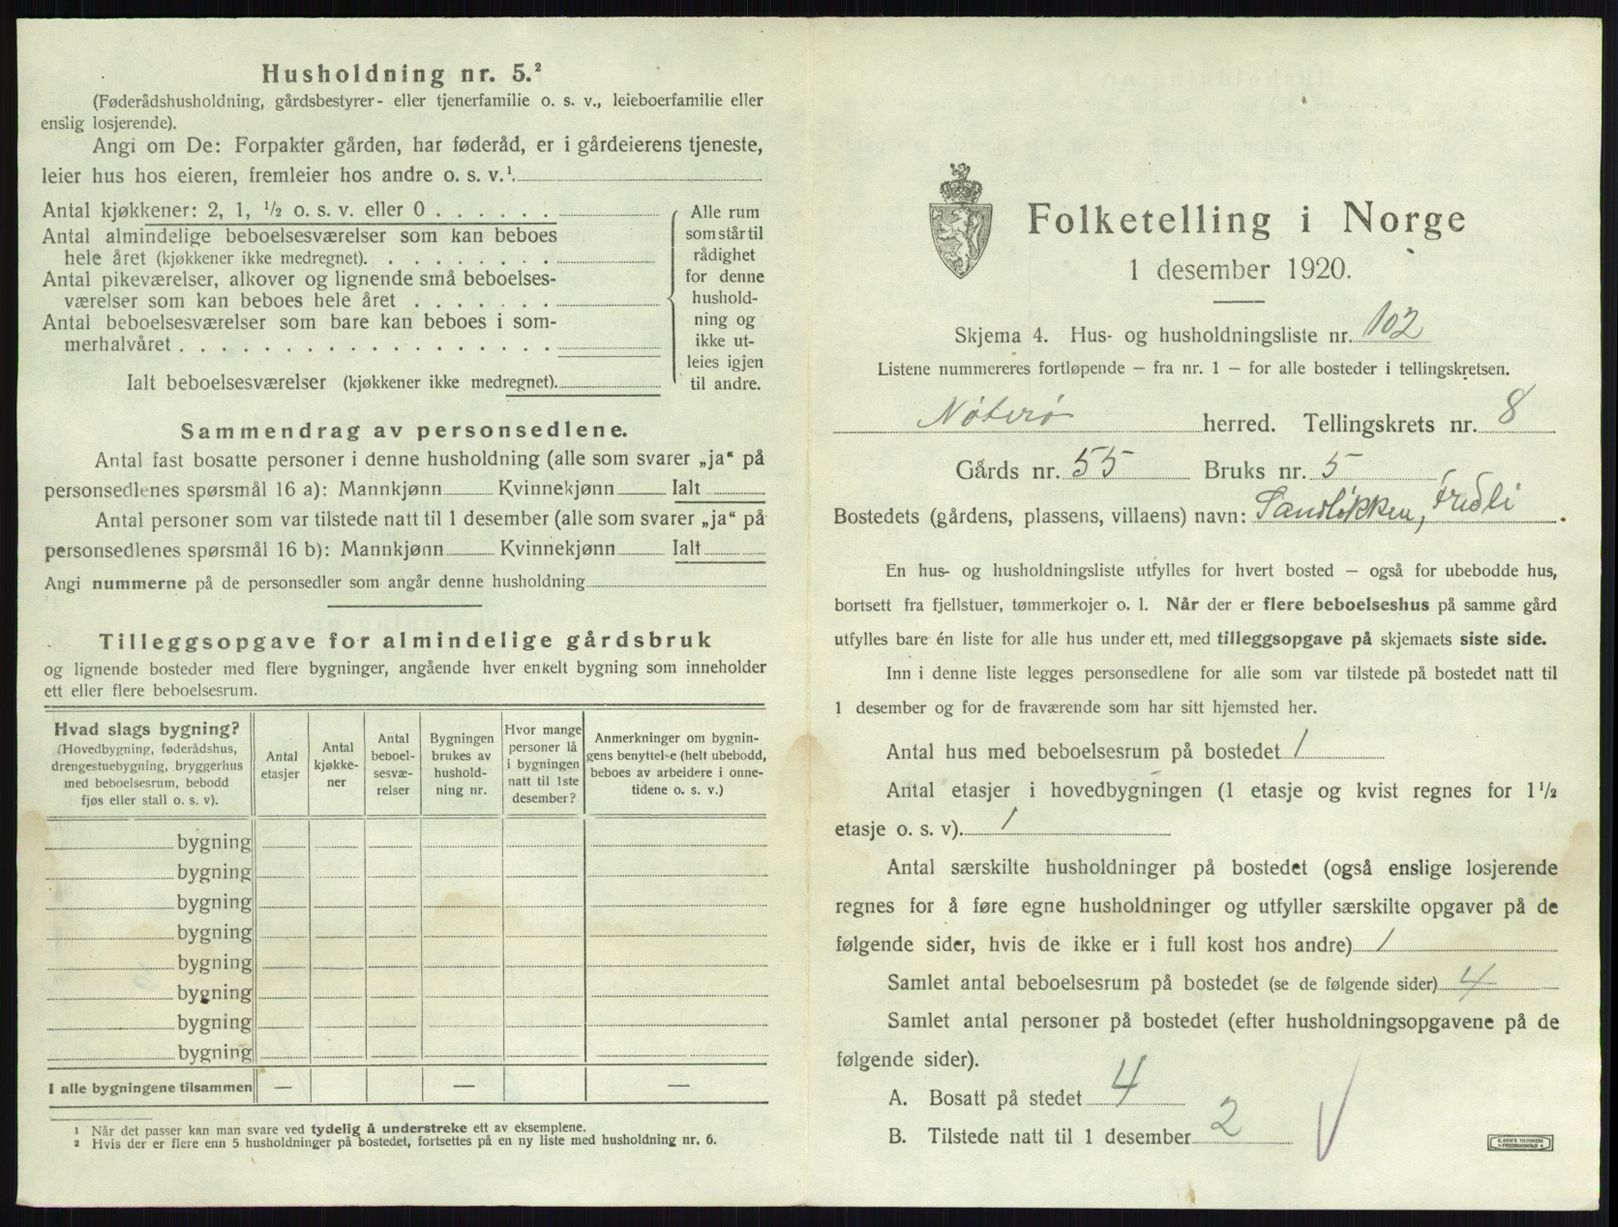 Husholdning nr. 5.²
(Føderådshusholdning, gårdsbestyrer- eller tjenerfamilie o. s. v., leieboerfamilie eller
enslig losjerende).
Angi om De: Forpakter gården, har føderåd, er i gårdeierens tjeneste,
leier hus hos eieren, fremleier hos andre o. s. v.¹
Antal kjøkkener: 2, 1, ½ o. s. v. eller 0 . . . . . .
Antal almindelige beboelsesværelser som kan beboes
hele året (kjøkkener ikke medregnet). . . . . . . . .
Antal pikeværelser, alkover og lignende små beboelses-
værelser som kan beboes hele året . . . . . . .
Antal beboelsesværelser som bare kan beboes i som-
merhalvåret . . . . . . . . . . . . . . . . . .
Ialt beboelsesværelser (kjøkkener ikke medregnet).
Alle rum
som står til
rådighet
for denne
hushold-
ning og
ikke ut-
leies igjen
til andre.
Sammendrag av personsedlene.
Antal fast bosatte personer i denne husholdning (alle som svarer „ja“ på
personsedlenes spørsmål 16 a): Mannkjønn Kvinnekjønn Ialt
Antal personer som var tilstede natt til 1 desember (alle som svarer „ja“ på
personsedlenes spørsmål 16 b): Mannkjønn Kvinnekjønn Ialt
Angi nummerne på de personsedler som angår denne husholdning
Tilleggsopgave for almindelige gårdsbruk
og lignende bosteder med flere bygninger, angående hver enkelt bygning som inneholder
ett eller flere beboelsesrum.
Hvad slags bygning?
(Hovedbygning, føderådshus,
drengestuebygning, bryggerhus
med beboelsesrum, bebodd
fjøs eller stall o. s. v).
Antal
etasjer
Antal
kjøkke-
ner
Antal
beboel-
sesvæ-
relser
Bygningen
brukes av
hushold-
ning nr.
Hvor mange
personer lå
i bygningen
natt til 1ste
desember?
Anmerkninger om bygnin-
gens benyttelse (helt ubebodd,
beboes av arbeidere i onne-
tidene o. s. v.)
bygning
bygning
bygning
bygning
bygning
bygning
bygning
bygning
I alle bygningene tilsammen — — —
¹ Når det passer kan man svare ved tydelig å understreke ett av eksemplene.
² Hvis der er flere enn 5 husholdninger på bostedet, fortsettes på en ny liste med husholdning nr. 6.
Folketelling i Norge
1 desember 1920.
Skjema 4. Hus- og husholdningsliste nr. 102
Listene nummereres fortløpende — fra nr. 1 — for alle bosteder i tellingskretsen.
Nøterø herred. Tellingskrets nr. 8
Gårds nr. 55 Bruks nr. 5
Bostedets (gårdens, plassens, villaens) navn: Sandløkken, Fredli .
En hus- og husholdningsliste utfylles for hvert bosted — også for ubebodde hus,
bortsett fra fjellstuer, tømmerkojer o. l. Når der er flere beboelseshus på samme gård
utfylles bare én liste for alle hus under ett, med tilleggsopgave på skjemaets siste side.
Inn i denne liste legges personsedlene for alle som var tilstede på bostedet natt til
1 desember og for de fraværende som har sitt hjemsted her.
Antal hus med beboelsesrum på bostedet 1
Antal etasjer i hovedbygningen (1 etasje og kvist regnes for 1½
etasje o. s. v). 1
Antal særskilte husholdninger på bostedet (også enslige losjerende
regnes for å føre egne husholdninger og utfyller særskilte opgaver på de
følgende sider, hvis de ikke er i full kost hos andre) 1
Samlet antal beboelsesrum på bostedet (se de følgende sider) 4
Samlet antal personer på bostedet (efter husholdningsopgavene på de
følgende sider).
A. Bosatt på stedet 4
B. Tilstede natt til 1 desember 2